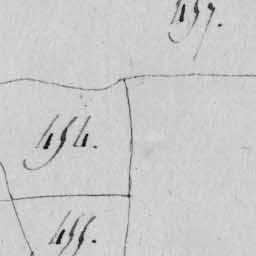 457.
454.
455.